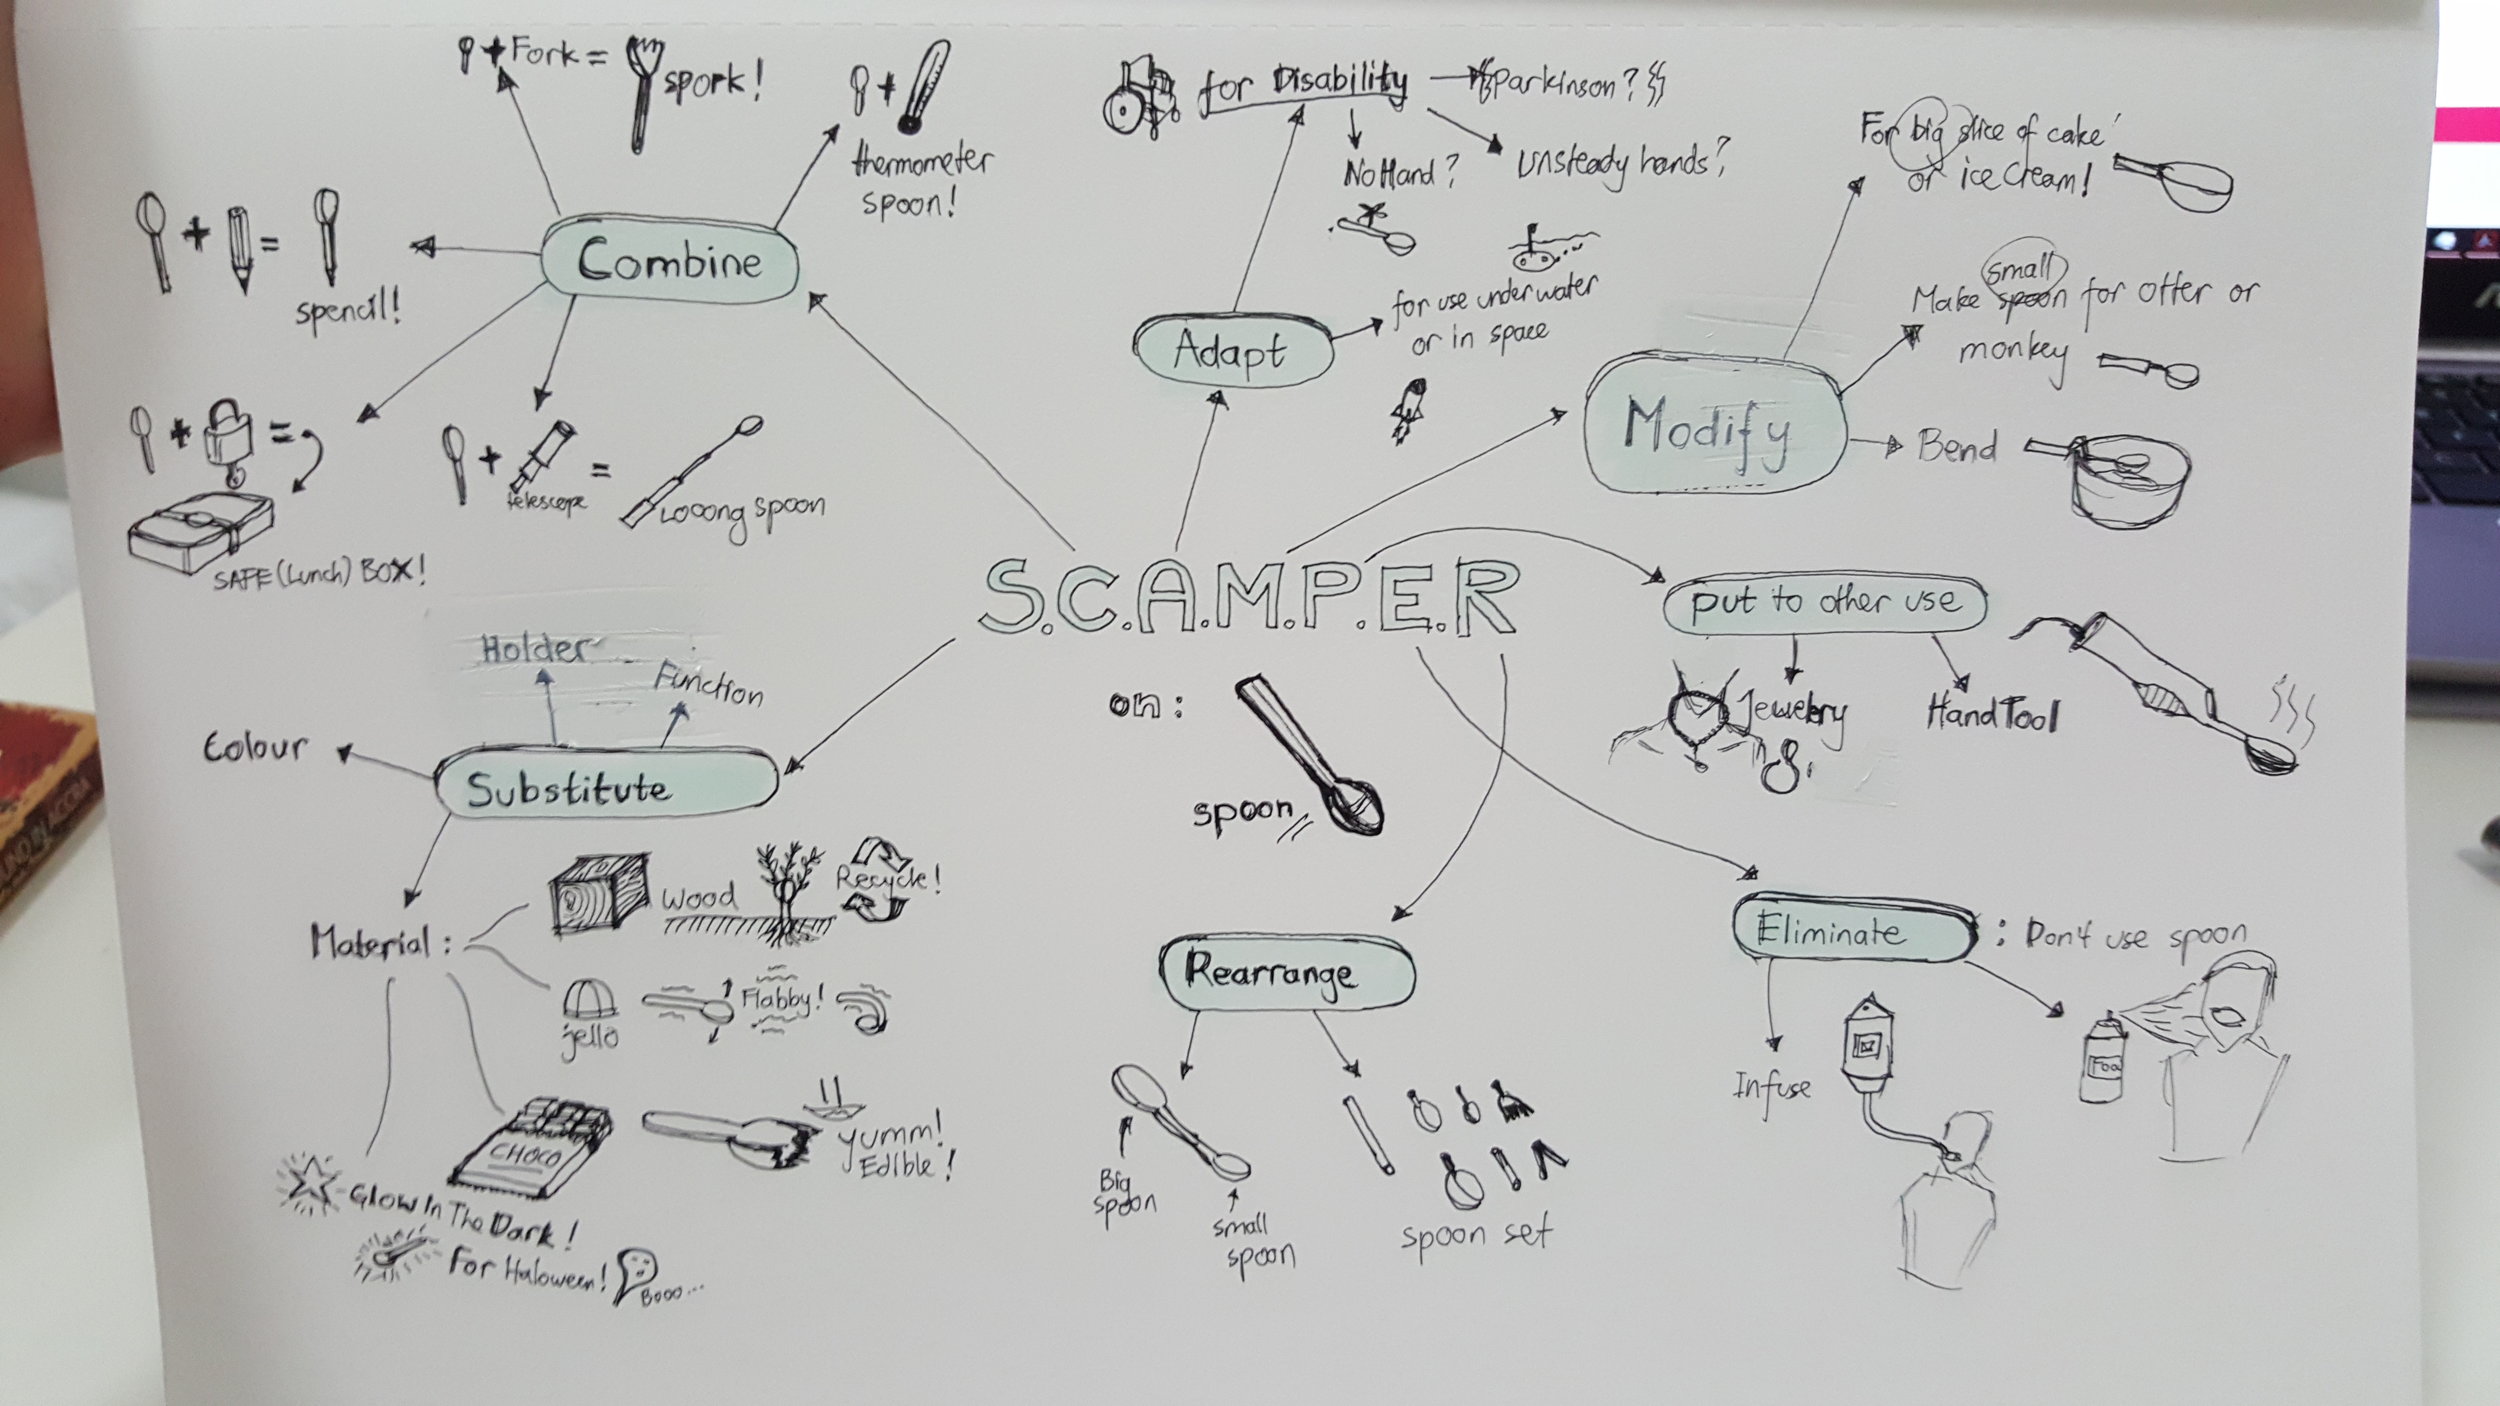 + Fork = spork!
+
thermometer
spoon!
+ =
spencil!
Combine
+ =
SAFE (Lunch) BOX!
+ =
telescope
Looong spoon
for Disability
Parkinson?
No Hand?
Unsteady hands?
for use underwater
or in space
Adapt
For big slice of cake
or ice cream!
small
Make spoon for otter or
monkey
Bend
Modify
S.C.A.M.P.E.R
on:
spoon
put to other use
Jewelry
Hand Tool
Holder
Function
Colour
Substitute
Material:
Wood
Recycle!
jello
Flabby!
CHOCO
Yumm!
Edible!
Glow In The Dark!
For Haloween!
Booo...
Rearrange
Big
spoon
small
spoon
spoon set
Eliminate : Don't use spoon
Infuse